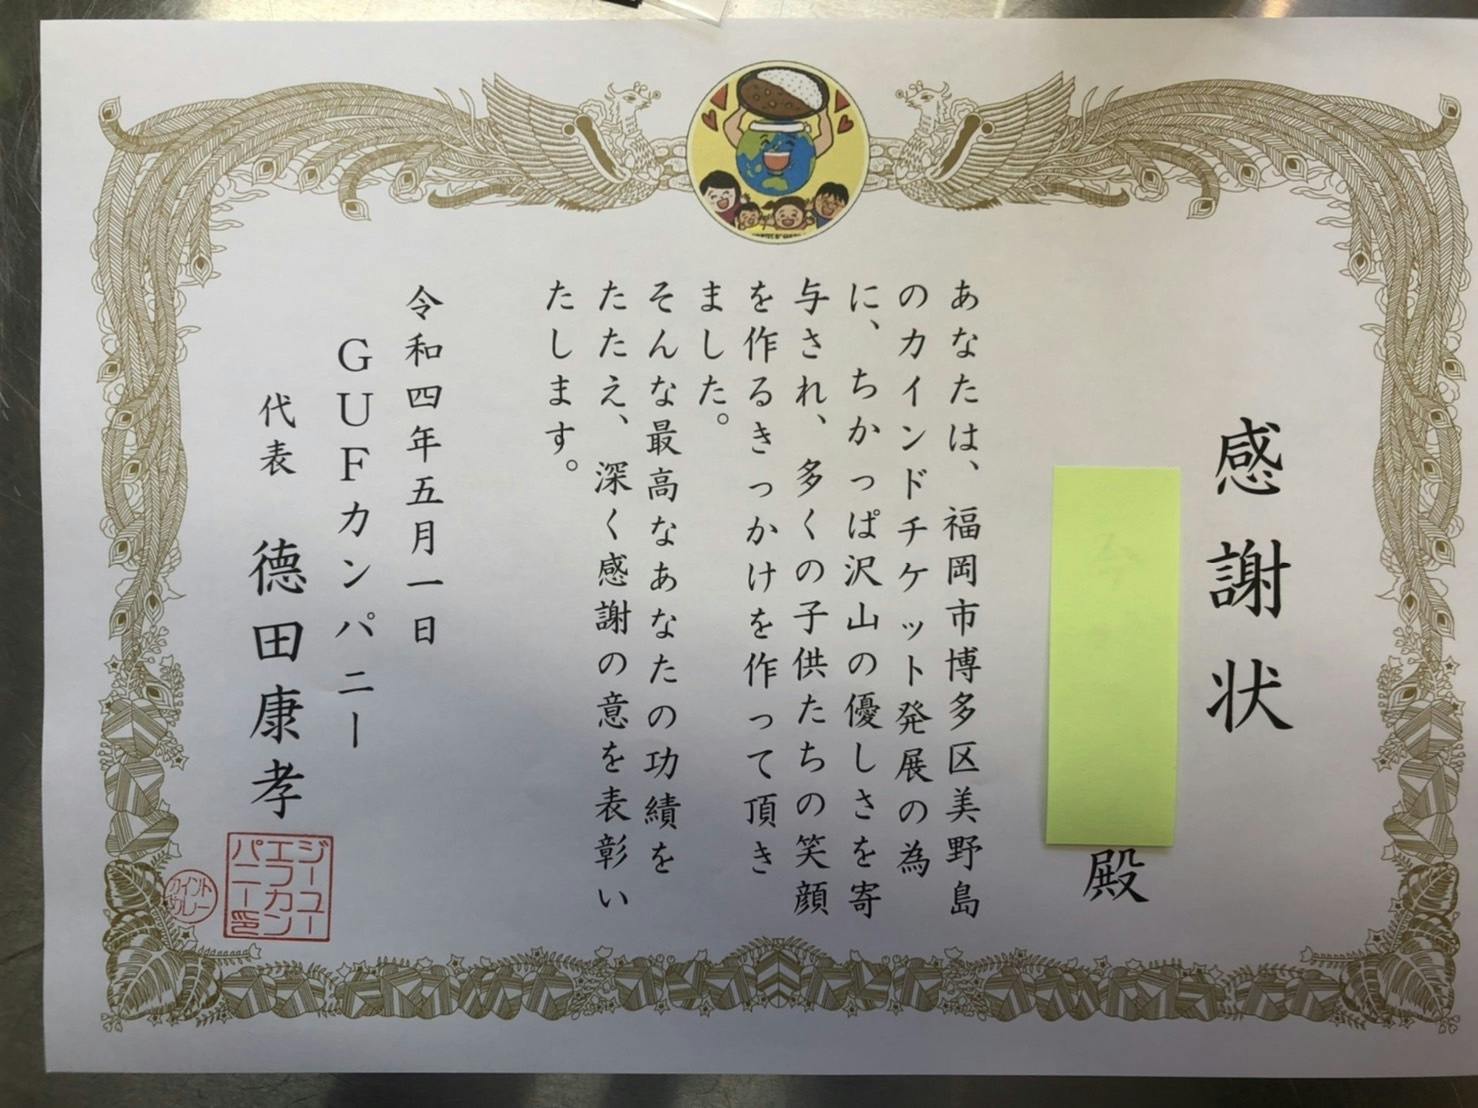 感謝状
殿
あなたは、福岡市博多区美野島
のカインドチケット発展の為
に、ちかっぱ沢山の優しさを寄
与され、多くの子供たちの笑顔
を作るきっかけを作って頂き
ました。
そんな最高なあなたの功績を
たたえ、深く感謝の意を表彰い
たします。
令和四年五月一日
GUFカンパニー
代表 徳田康孝
ジーユー
エフカン
パニー印
カインド
カレー